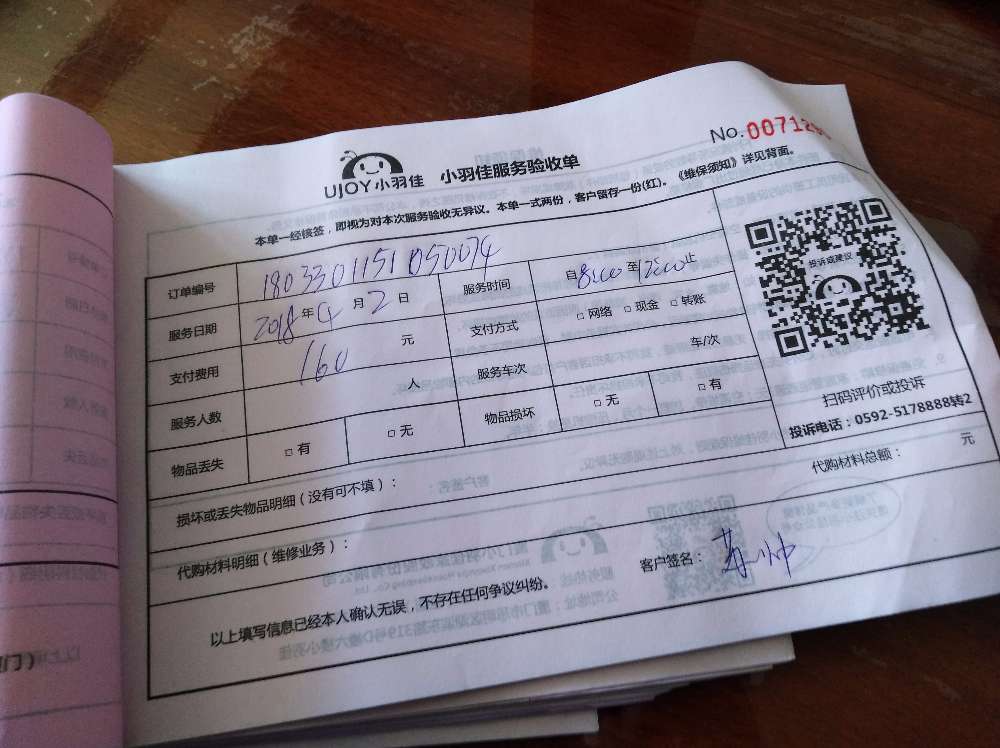 No.0071
UJOY小羽佳 小羽佳服务验收单
本单一经核签，即视为对本次服务验收无异议。本单一式两份，客户留存一份(红)。《维保须知》详见背面。
订单编号 1803301151050074 服务时间 自8:00至12:00止
服务日期 2018年4月2日 支付方式 □ 网络 □ 现金 □ 转账
支付费用 160 元 服务车次 车/次
服务人数 人 物品损坏 □ 无 □ 有
物品丢失 □ 有 □ 无
投诉或建议
扫码评价或投诉
投诉电话：0592-5178888转2
损坏或丢失物品明细（没有可不填）：
代购材料明细（维修业务）： 代购材料总额： 元
客户签名：
以上填写信息已经本人确认无误，不存在任何争议纠纷。